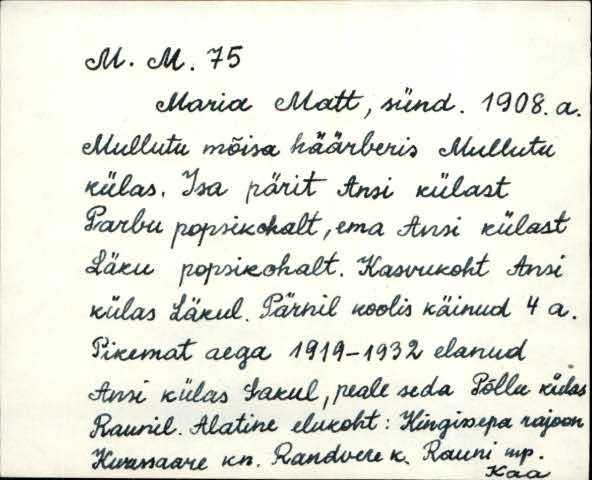 M. M. 75
Maria Matt, sünd. 1908. a.
Mullutu mõisa häärberis Mullutu
külas. Isa pärit Ansi külast
Parbu popsikohalt, ema Ansi külast
Läku popsikohalt. Kasvukoht Ansi
külas Läkul. Pärnil koolis käinud 4 a.
Pikemat aega 1919-1932 elanud
Ansi külas Lakul, peale seda Põllu külas
Raunil. Alatine elukoht: Kingissepa rajoon
Kuressaare kn. Randvere k. Rauni mp.
Kaa